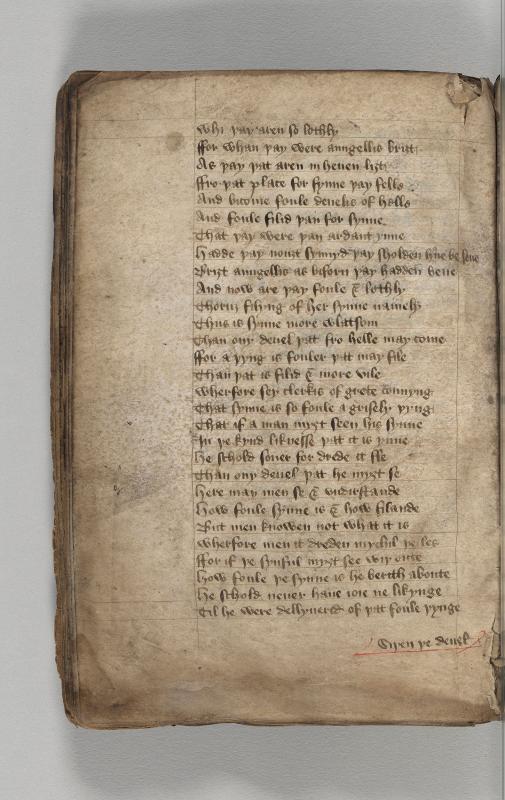 Whi þay aren so lothly
ffor whan þay were aungellis briȝt
As þay þat aren in heuen liȝt
ffro þat place for synne þay felle
And bicome foule deuelis of helle
And foule filid þan for synne
That þay were þan ardant ynne
Hadde þay nouȝt synnyd þay sholden haue be
Briȝt aungellis as biforn þay hadden bene
And now are þay foule & lothly
Thoruȝ filyng of her synne namely
Thus is synne more wlattsom
Than ony deuel þat fro helle may come
ffor a þyng is fouler þat may file
Than þat is filid & more vile
Wherfore sey clerkis of grete connyng
That synne is so foule a grisely þyng
That if a man myȝt seen his synne
In þe kynd liknesse þat it is ynne
He schold soner for drede it fle
Than ony deuel þat he myȝt se
Here may men se & vndirstande
How foule synne is & how filande
But men knowen not what it is
Wherfore men it dreden mychil þe les
ffor if þe synful myȝt see wiþ oute
How foule þe synne is he bereth aboute
He schold neuer haue ioie ne likynge
Til he were dellyuered of þat foule þynge
Siþen þe deuel